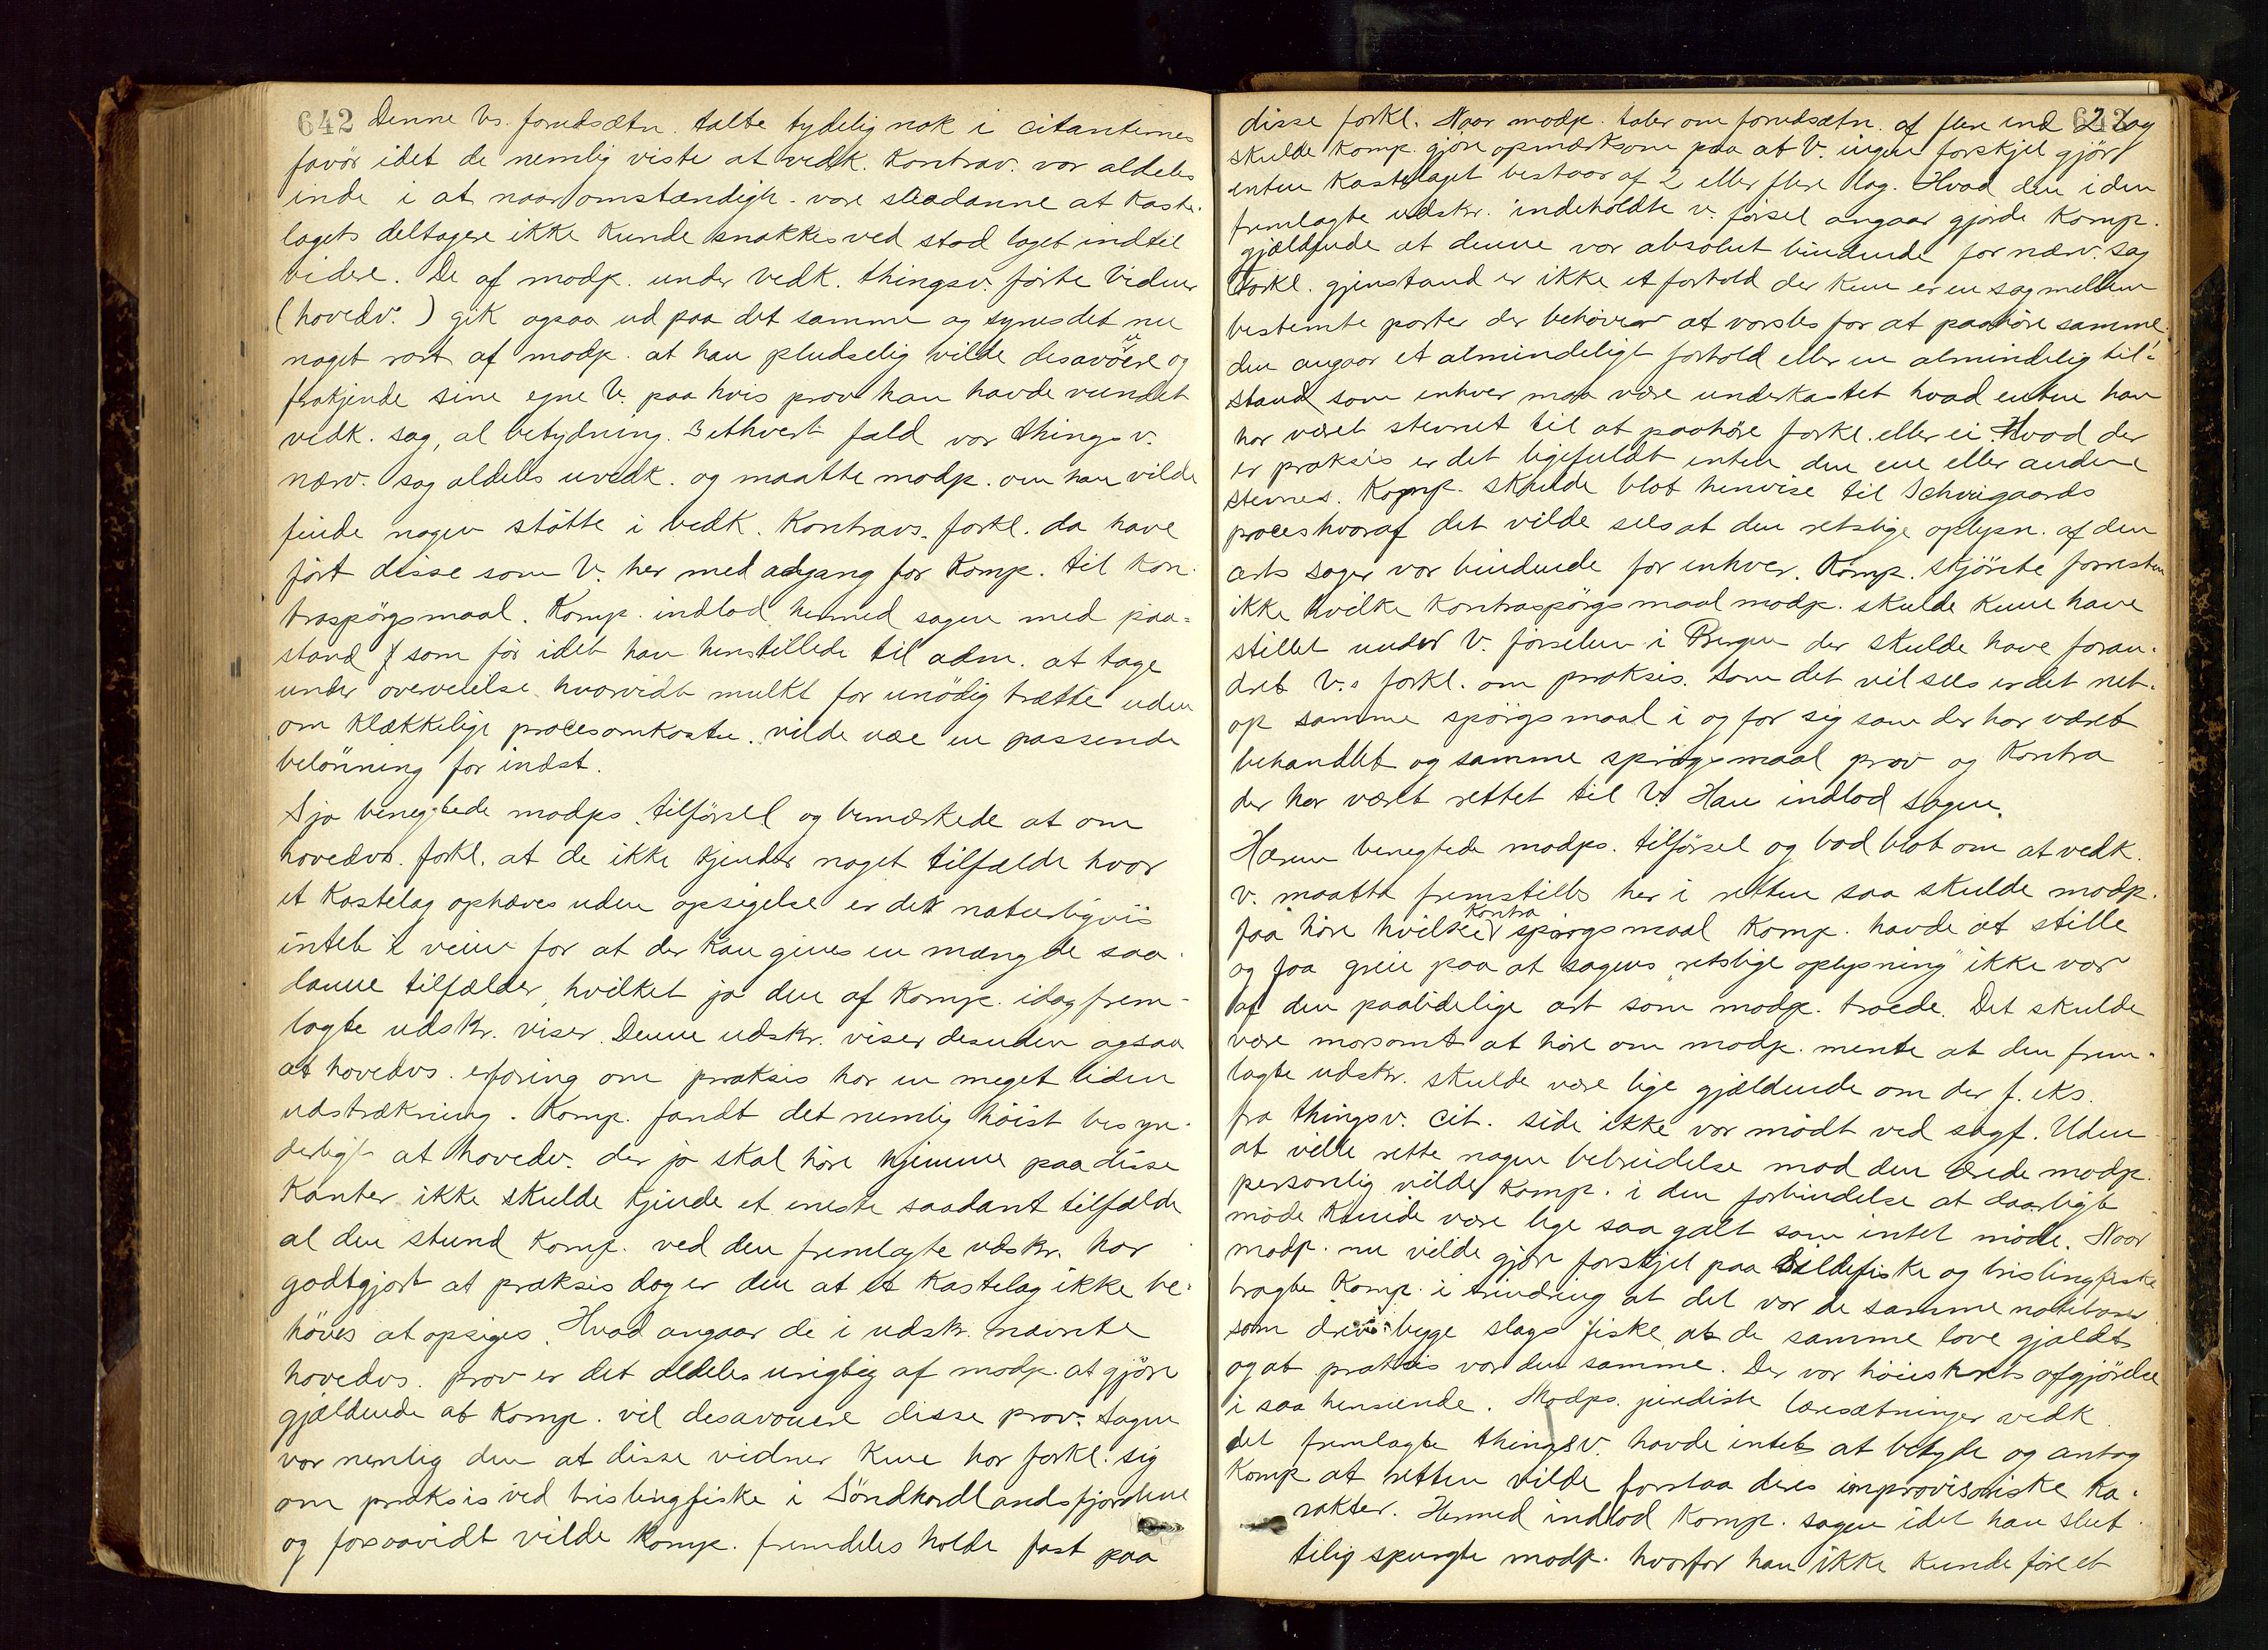 642 Denne Vs. forudsætn. talte tydelig nok i citanternes
favör idet de nemlig viste at vedk. Kontrav. var aldeles
inde i at naar omstændigh. vare saadanne at Kaste-
lagets deltagere ikke kunde snakkes ved stod laget indtil
videre. De af modp. under vedk. thingsv. førte Vidner
(hovedv.) gik ogsaa ud paa det samme og synes det nu
noget rart af modp. at han pludselig vilde desavouere og
frakjende sine egne V. paa hvis prov han havde vundet
vedk. sag, al betydning. I ethvert fald var thingsv.
nærv. sag aldeles uvedk. og maatte modp. om han vilde
finde nogen støtte i vedk. Kontravs. forkl. da have
ført disse som V. her med adgang for Komp. til Kon-
traspørgsmaal. Komp. indlod hermed sagen med paa-
stand som før idet han henstillede til adm. at tage
under overveielse hvorvidt mulkt for unödig trætte uden
om klækkelige procesomkostn. vilde være en passende
belönning for indst.
Sjo benegtede modps. tilførsel og bemærkede at om
hovedvs. forkl. at de ikke kjender noget tilfælde hvor
et Kastelag ophæves uden opsigelse er det naturligviis
intet i veien for at der kan gives en mængde saa-
danne tilfælder, hvilket jo den af Komp. idag frem-
lagte udskr. viser. Denne udskr. viser desuden ogsaa
at hovedvs. erfaring om praksis har en meget liden
udstrækning. Komp. fandt det nemlig høist besyn-
derligt at hovedv. der jo skal høre hjemme paa disse
Kanter ikke skulde kjende et eneste saadant tilfælde
al den stund Komp. ved den fremlagte udskr. har
godtgjort at praksis dog er den at et Kastelag ikke be-
høves at opsiges. Hvad angaar de i udskr. nævnte
hovedvs. prov er det aldeles urigtig af modp. at gjöre
gjældende at Komp. vil desavouere disse prov. Sagen
var nemlig den at disse vidner kun har forkl. sig
om praksis ved brislingfiske i Söndhordlandsfjordene
og forsaavidt vilde Komp. fremdeles holde fast paa
disse forkl. Naar modp. taler om forudsætn. af flere end 2 lag
skulde Komp. gjöre opmærksom paa at V. ingen forskjel gjör
enten Kastelaget bestaar af 2 eller flere lag. Hvad den i den
fremlagte udskr. indeholdte v. førsel angaar gjorde Komp.
gjældende at denne var absolut bindende for nærv. sag
Forkl. gjenstand er ikke et forhold der kun er en sag mellem
bestemte parter der behöver at varsles for at paahøre samme
den angaar et almindeligt forhold eller en almindelig til-
stand som enhver maa være underkastet hvad enten han
har været stevnet til at paahøre forkl. eller ei. Hvad der
er praksis er det ligefuldt enten den ene eller anden
stevnes. Komp. skulde blot henvise til Schweigaards
proces hvoraf det vilde sees at den retslige oplysn. af den
arts sager var bindende for enhver. Komp. skjønte forresten
ikke hvilke Kontraspørgsmaal modp. skulde kunne have
stillet under V. førselen i Bergen der skulde have foran-
dret V.s forkl. om praksis. Som det vil sees er det net-
op samme spørgsmaal i og for sig som der har været
behandlet og samme spørgsmaal prov og Kontra
der har været rettet til V. Han indlod sagen.
Hærem benegtede modps. tilførsel og bad blot om at vedk.
v. maatte fremstilles her i retten saa skulde modp.
faa høre hvilke Kontraspørgsmaal Komp. havde at stille
og faa greie paa at sagens "retslige oplysning" ikke var
af den paalidelige art som modp. troede. Det skulde
være morsomt at høre om modp. mente at den frem-
lagte udskr. skulde være lige gjældende om der f. eks.
fra thingsv. cit. side ikke var mödt ved sagf. Uden
at ville rette nogen bebreidelse mod den ærede modp.
personlig vilde Komp. i den forbindelse at daarligt
møde kunde være lige saa galt som intet møde. Naar
modp. nu vilde gjöre forskjel paa sildefiske og brislingfiske
bragte Komp. i erindring at det var de samme notebaser
som drev begge slags fiske, at de samme love gjaldt
og at praksis var den samme. Der var höiesterets afgjörelse
i saa henseende. Modps. juridiske læresætninger vedk.
det fremlagte thingsv. havde intet at betyde og antog
Komp. at retten vilde forstaa deres improvisoriske ka-
rakter. Hermed indlod Komp. sagen idet han slut-
tilig spurgte modp. hvorfor han ikke kunde føre et